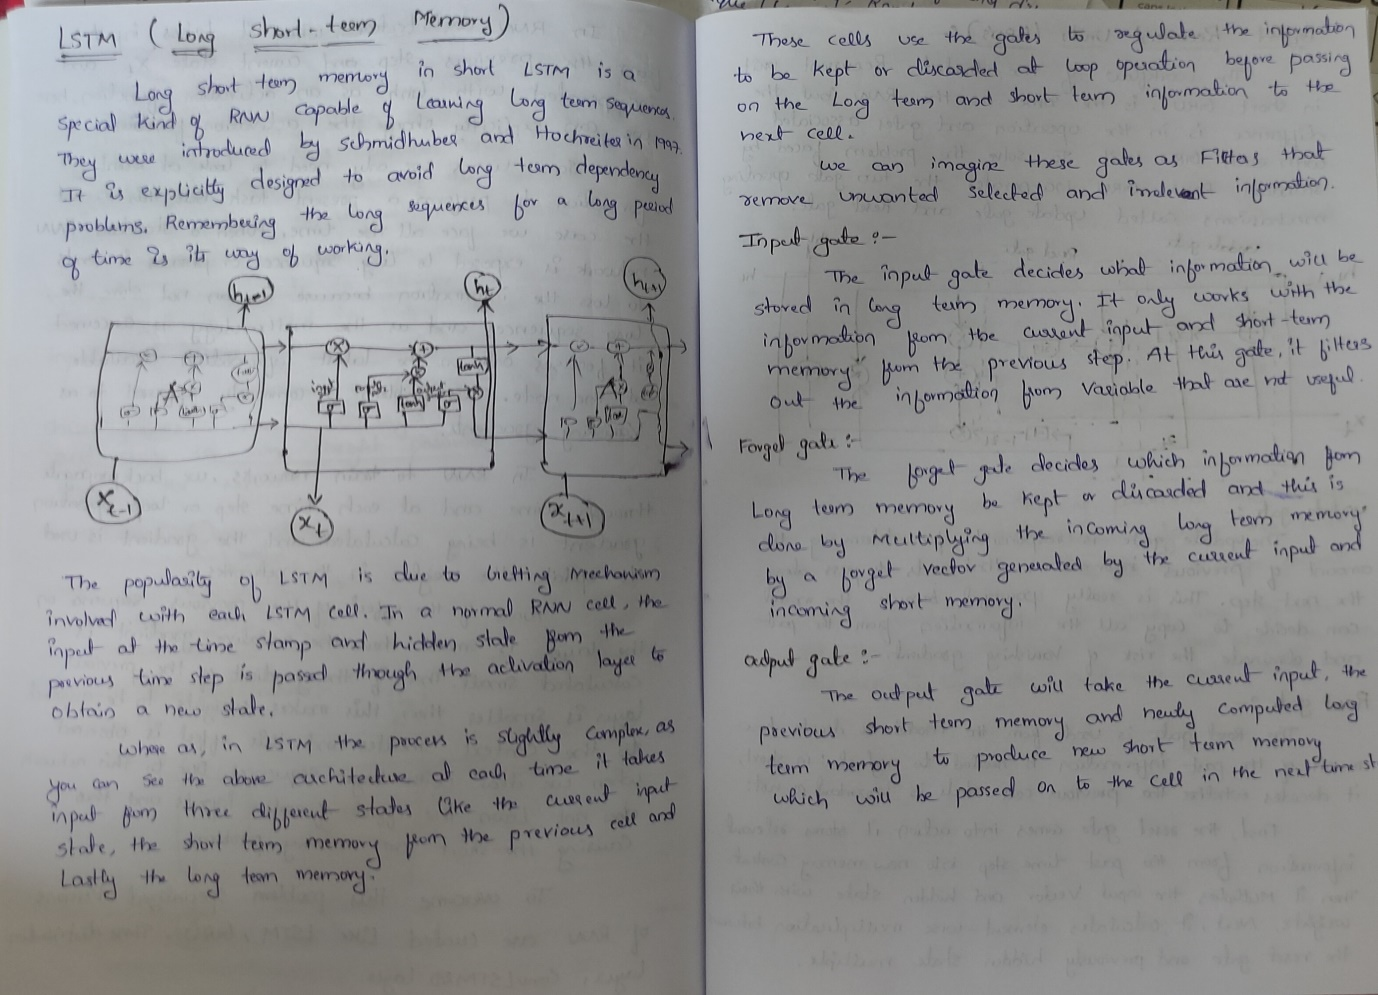 LSTM (Long Short-term Memory)
Long short term memory in short LSTM is a
special kind of RNN capable of Learning Long term sequences.
They were introduced by schmidhuber and Hochreiter in 1997.
It is explicitly designed to avoid long term dependency
problems. Remembering the long sequences for a long period
of time is its way of working.
ht-1
ht
ht+1
tanh
A
A
tanh
Xt-1
Xt
xt+1
The popularity of LSTM is due to Getting Mechanism
involved with each LSTM cell. In a normal RNN cell, the
input at the time stamp and hidden state from the
previous time step is passed through the activation layer to
obtain a new state.
Where as, in LSTM the process is slightly complex, as
you can see the above architecture at each time it takes
input from three different states like the current input
state, the short term memory from the previous cell and
Lastly the long term memory.
These cells use the gates to regulate the information
to be kept or discarded at loop operation before passing
on the Long term and short term information to the
next cell.
we can imagine these gates as Filters that
remove unwanted selected and irrelevant information.
Input gate :-
The input gate decides what information will be
stored in long term memory. It only works with the
information from the current input and short-term
memory from the previous step. At this gate, it filters
out the information from variable that are not useful.
Forget gate :-
The forget gate decides which information from
Long term memory be kept or discarded and this is
done by Multiplying the incoming long term memory
by a forget vector generated by the current input and
incoming short memory.
output gate :-
The output gate will take the current input, the
previous short term memory and newly computed long
term memory to produce new short term memory
which will be passed on to the cell in the next time st